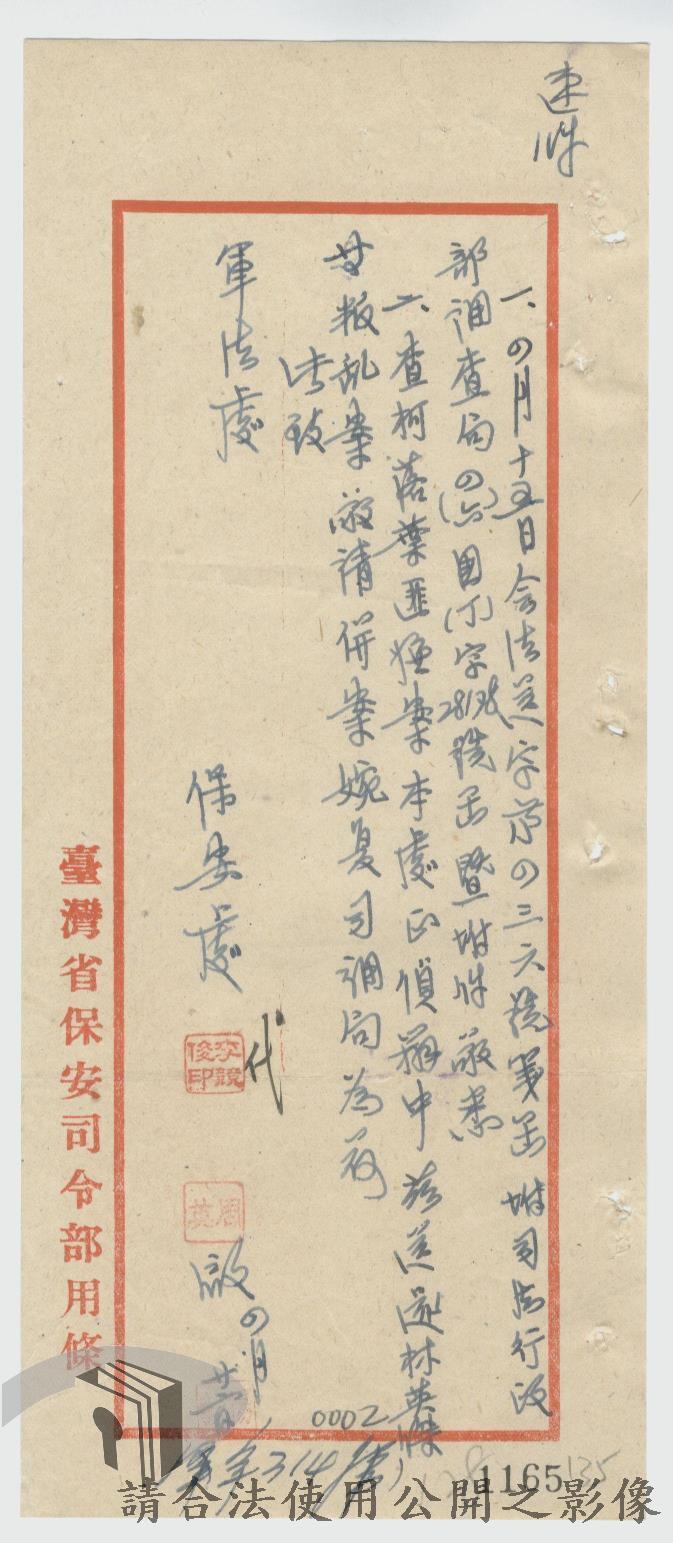 速件
一、四月十五日會法送字第四三六號箋函附司法行政
部調查局四(六)國(丁)字28198號函暨附件敬悉
二、查柯落葉匪嫌案本處正偵辦中茲送還林英傑
等叛乱案敬請併案婉复司調局為荷
此致
軍法處
保安處
代
李競俊印
周英
啟四月廿一日
314
臺灣省保安司令部用條
0002
1165
135
請合法使用公開之影像